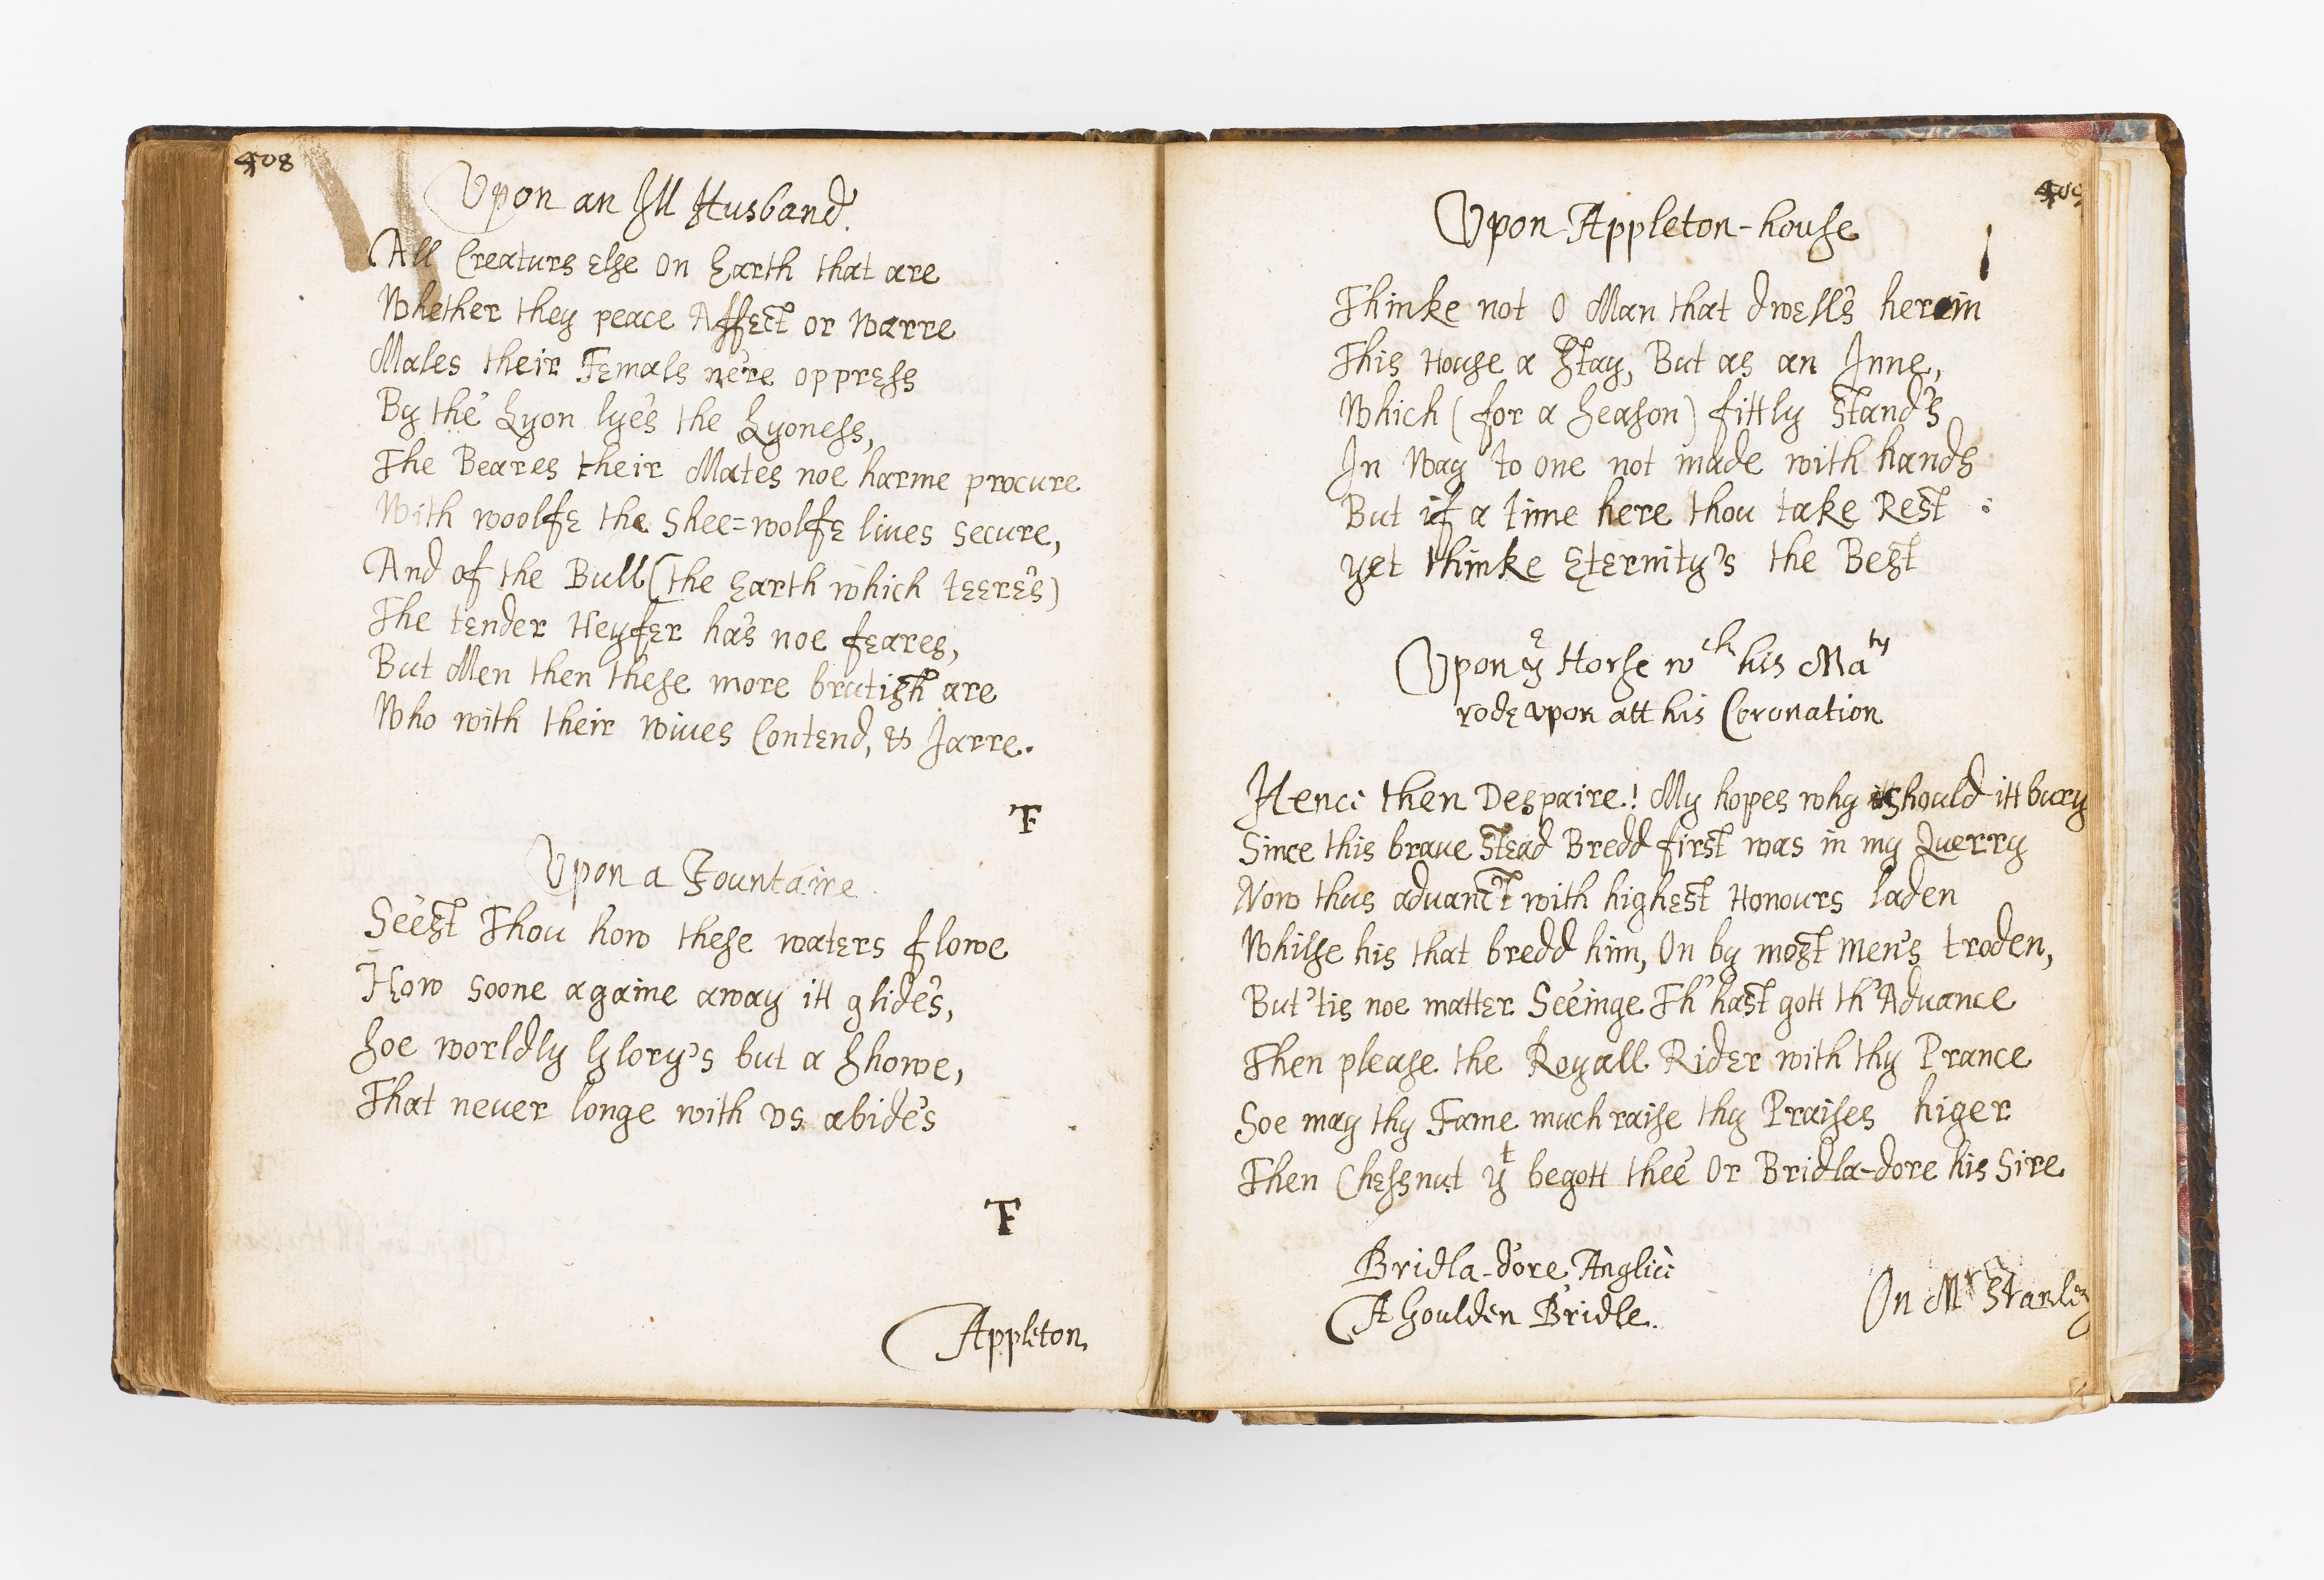 408
Vpon an Ill Husband.
All Creaturs else on Earth that are
Whether they peace Affect or Warre
Males their Femals ne're oppress
By the' Lyon lye's the Lyoness,
The Beares their Mates noe harme procure
With woolfe the Shee=wolfe liues secure,
And of the Bull (the Earth which teere's)
The tender Heyfer ha's noe feares,
But Men then these more brutish are
Who with their wiues Contend, & Jarre.
F
Vpon a Fountaine.
See'st Thou how these waters flowe
How soone againe away itt glide's,
Soe worldly Glory's but a Showe,
That neuer longe with vs abide's
F
Appleton
409
Vpon Appleton-house
Thinke not O Man that dwell's herein
This House a Stay, But as an Inne,
Which (for a Season) fittly stand's
In Way to one not made with hands
But if a time here thou take Rest :
yet thinke Eternity's the Best
Vpon ye Horse wch his Maty
rode vpon att his Coronation
Hence then Despaire! My hopes why should itt bury
Since this braue stead Bredd first was in my Querry
Now thus aduanc't with highest Honours laden
Whilse his that bredd him, On by most men's troden,
But 'tis noe matter See'inge Th' hast gott th' Aduance
Then please the Royall Rider with thy Prance
Soe may thy Fame much raise thy Praises higer
Then Chessnut yt begott thee' Or Bridla-dore his Sire
Bridla-dore, Anglice
A Goulden Bridle.
On Mr Stanley